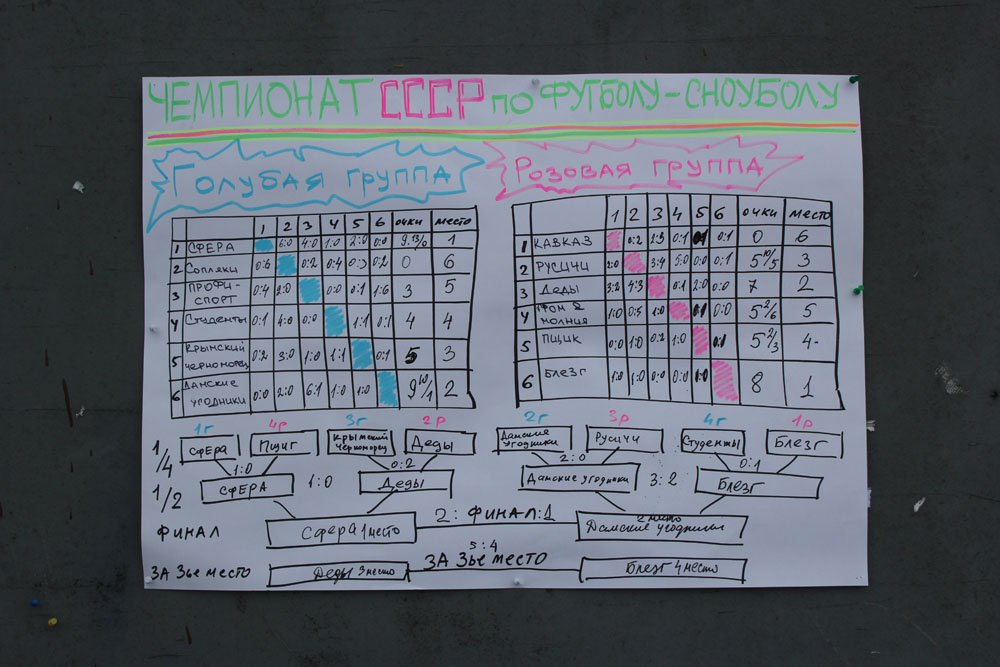 ЧЕМПИОНАТ СССР ПО ФУТБОЛУ-СНОУБОЛУ
Голубая группа
1 2 3 4 5 6 очки место
1 СФЕРА 6:0 4:0 1:0 2:0 0:0 9 13/0 1
2 Сопляки 0:6 0:2 0:4 0:3 0:2 0 6
3 ПРОФИ-СПОРТ 0:4 2:0 0:0 0:1 1:6 3 5
4 Студенты 0:1 4:0 0:0 1:1 0:1 4 4
5 Крымский черноморец 0:2 3:0 1:0 1:1 0:1 5 3
6 Дамские угодники 0:0 2:0 6:1 1:0 1:0 9 10/1 2
Розовая группа
1 2 3 4 5 6 очки место
1 КАВКАЗ 0:2 2:3 0:1 0:1 0 6
2 РУСИЧИ 2:0 3:4 5:0 0:0 0:1 5 10/5 3
3 Деды 3:2 4:3 0:1 2:0 0:0 7 2
4 Фом 2 молния 1:0 0:5 1:0 0:0 5 2/6 5
5 ПЩИК 0:0 1:0 0:2 1:0 0:1 5 2/3 4
6 БЛЕЗГ 1:0 1:0 0:0 0:0 1:0 8 1
1г 4р 3г 2р 2г 3р 4г 1р
1/4 СФЕРА Пщиг Крымский Черноморец Деды Дамские угодники Русичи Студенты Блезг
1:0 0:2 2:0 0:1
1/2 СФЕРА 1:0 Деды Дамские угодники 3:2 Блезг
ФИНАЛ Сфера 1 место 2: ФИНАЛ :1 2 место Дамские угодники
5:4
ЗА 3ье место Деды 3 место ЗА 3ье место Блезг 4 место